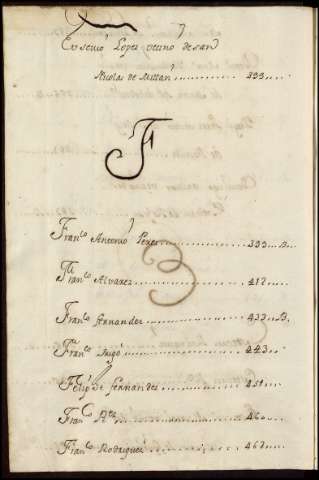 Eusevio Lopes vecino de san
Nicolas de Mistán ............ 393...
F
Franco Antonio Peres .......... 393..B.
Franco Alvarez .......... 412...
Franco Arnandez .......... 432..B.
Franco Trigo .......... 443...
Felipe fernandes .......... 451...
Franco .......... 460...
Franco Rodriguez .......... 462....